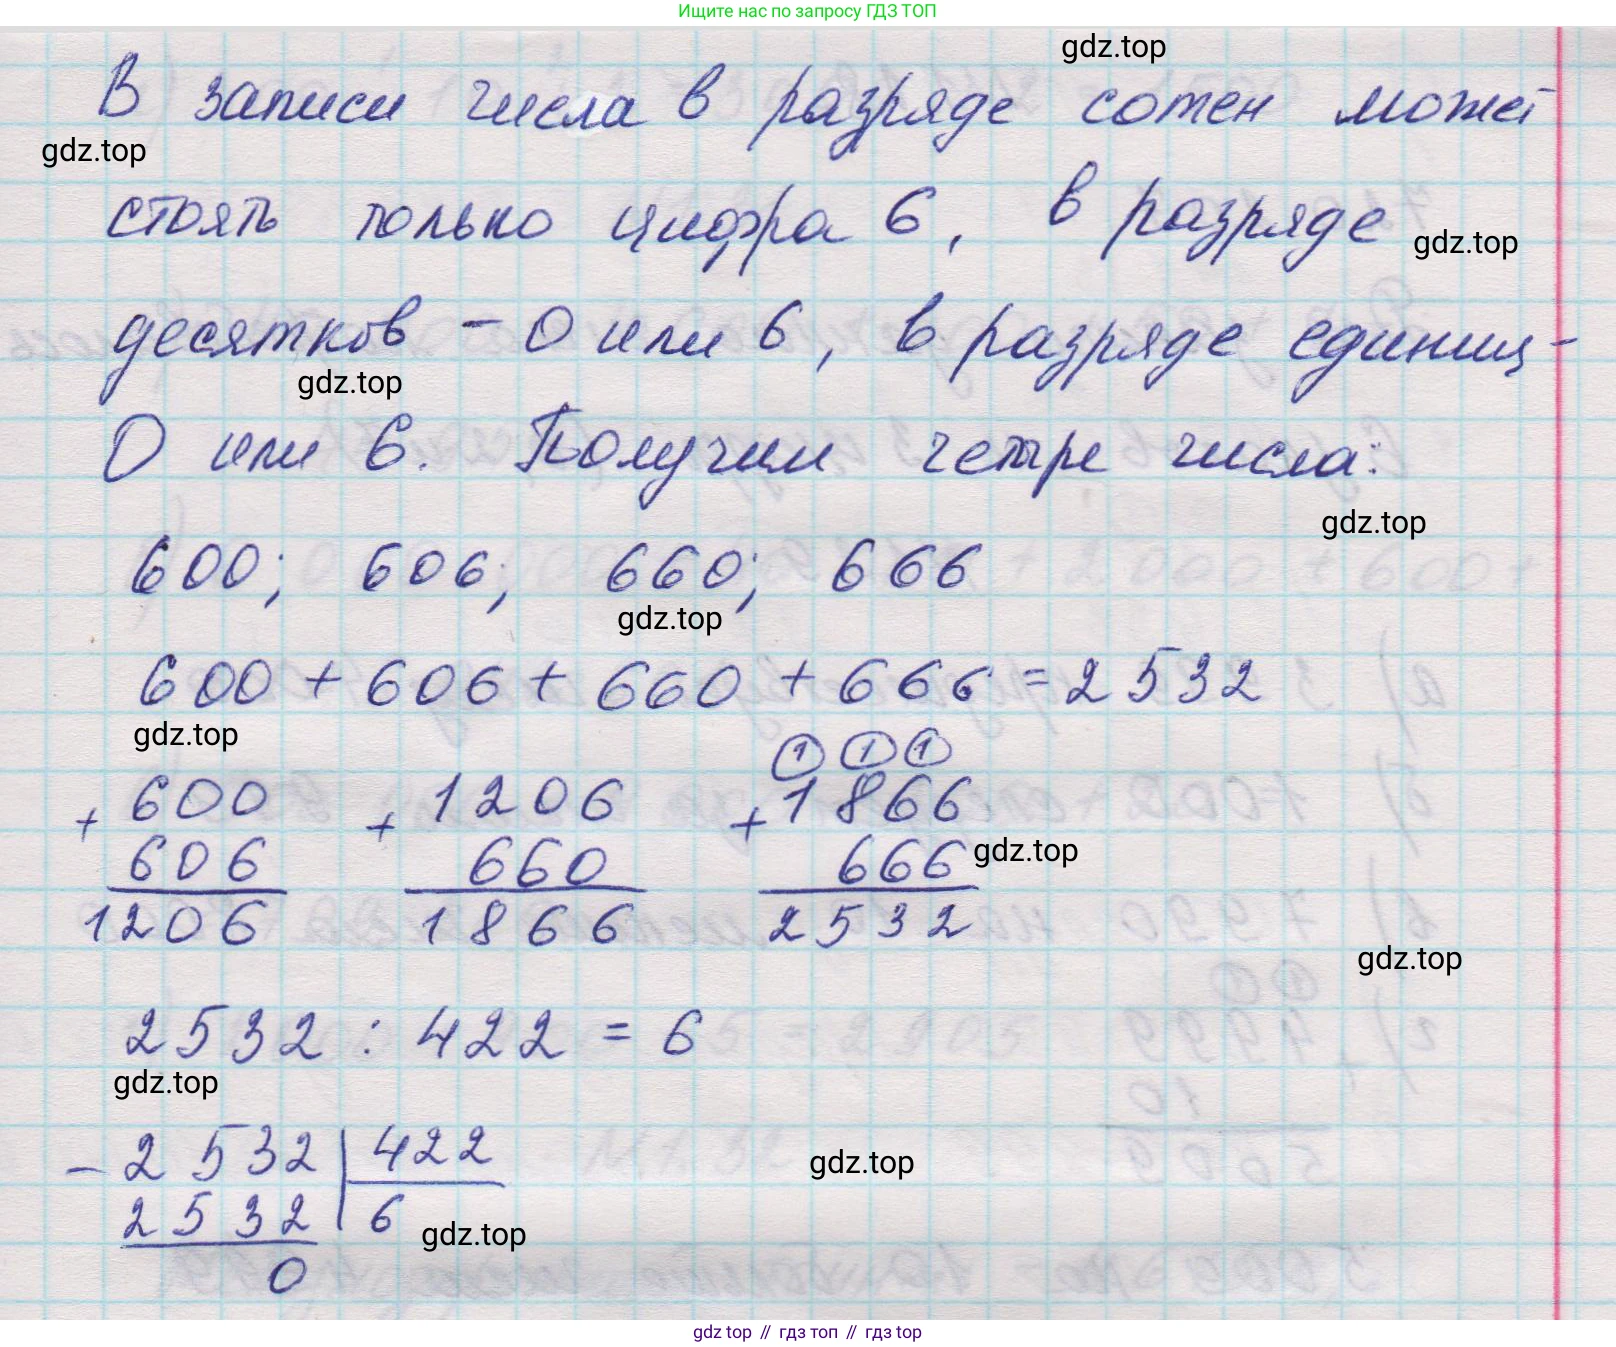 Ищите нас по запросу ГДЗ ТОП
gdz.top
В записи числа в разряде сотен может
gdz.top
стоять только цифра 6, в разряде
gdz.top
десятков - 0 или 6, в разряде единиц -
gdz.top
0 или 6. Получим четыре числа:
gdz.top
600; 606; 660; 666
gdz.top
600 + 606 + 660 + 666 = 2532
gdz.top
1 1 1
+ 600 + 1206 + 1866
606 660 666
gdz.top
1206 1866 2532
gdz.top
2532 : 422 = 6
gdz.top
- 2532 | 422
gdz.top
2532 | 6
gdz.top
0
gdz top // гдз топ // гдз top